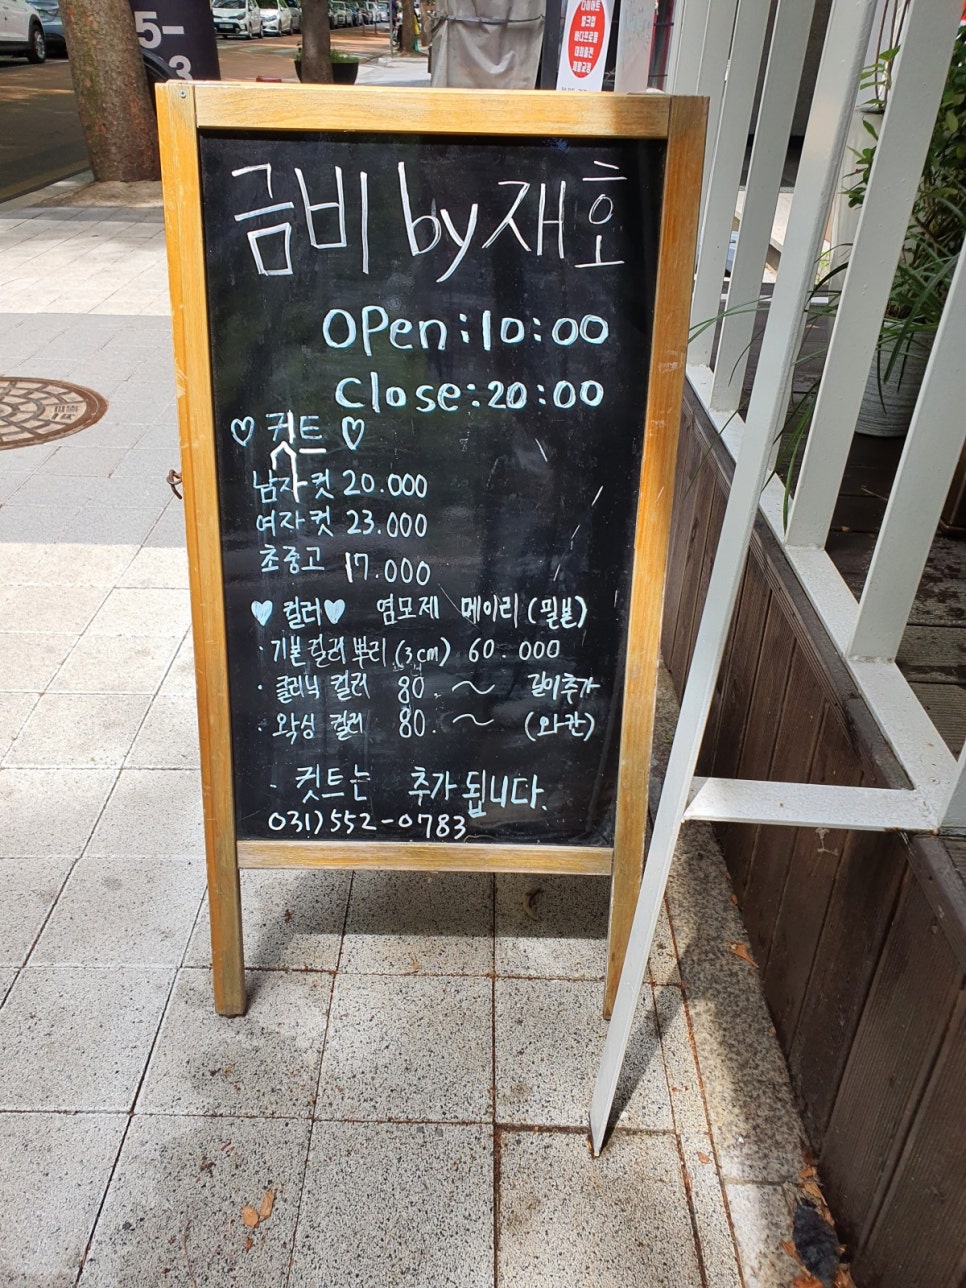 5-
3
다이어트
벌크업
바디프로필
대회출전
체형교정
금비 by 재호
OPen:10:00
Close:20:00
♡ 컷트 ♡
남자컷 20.000
여자컷 23.000
초중고 17.000
♥컬러♥ 염모제 메이리(밀본)
·기본컬러뿌리(3cm) 60.000
·클리닉 컬러 80.~ 길이추가
·왁싱 컬러 80.~
·컷트는 추가됩니다.
031)552-0783